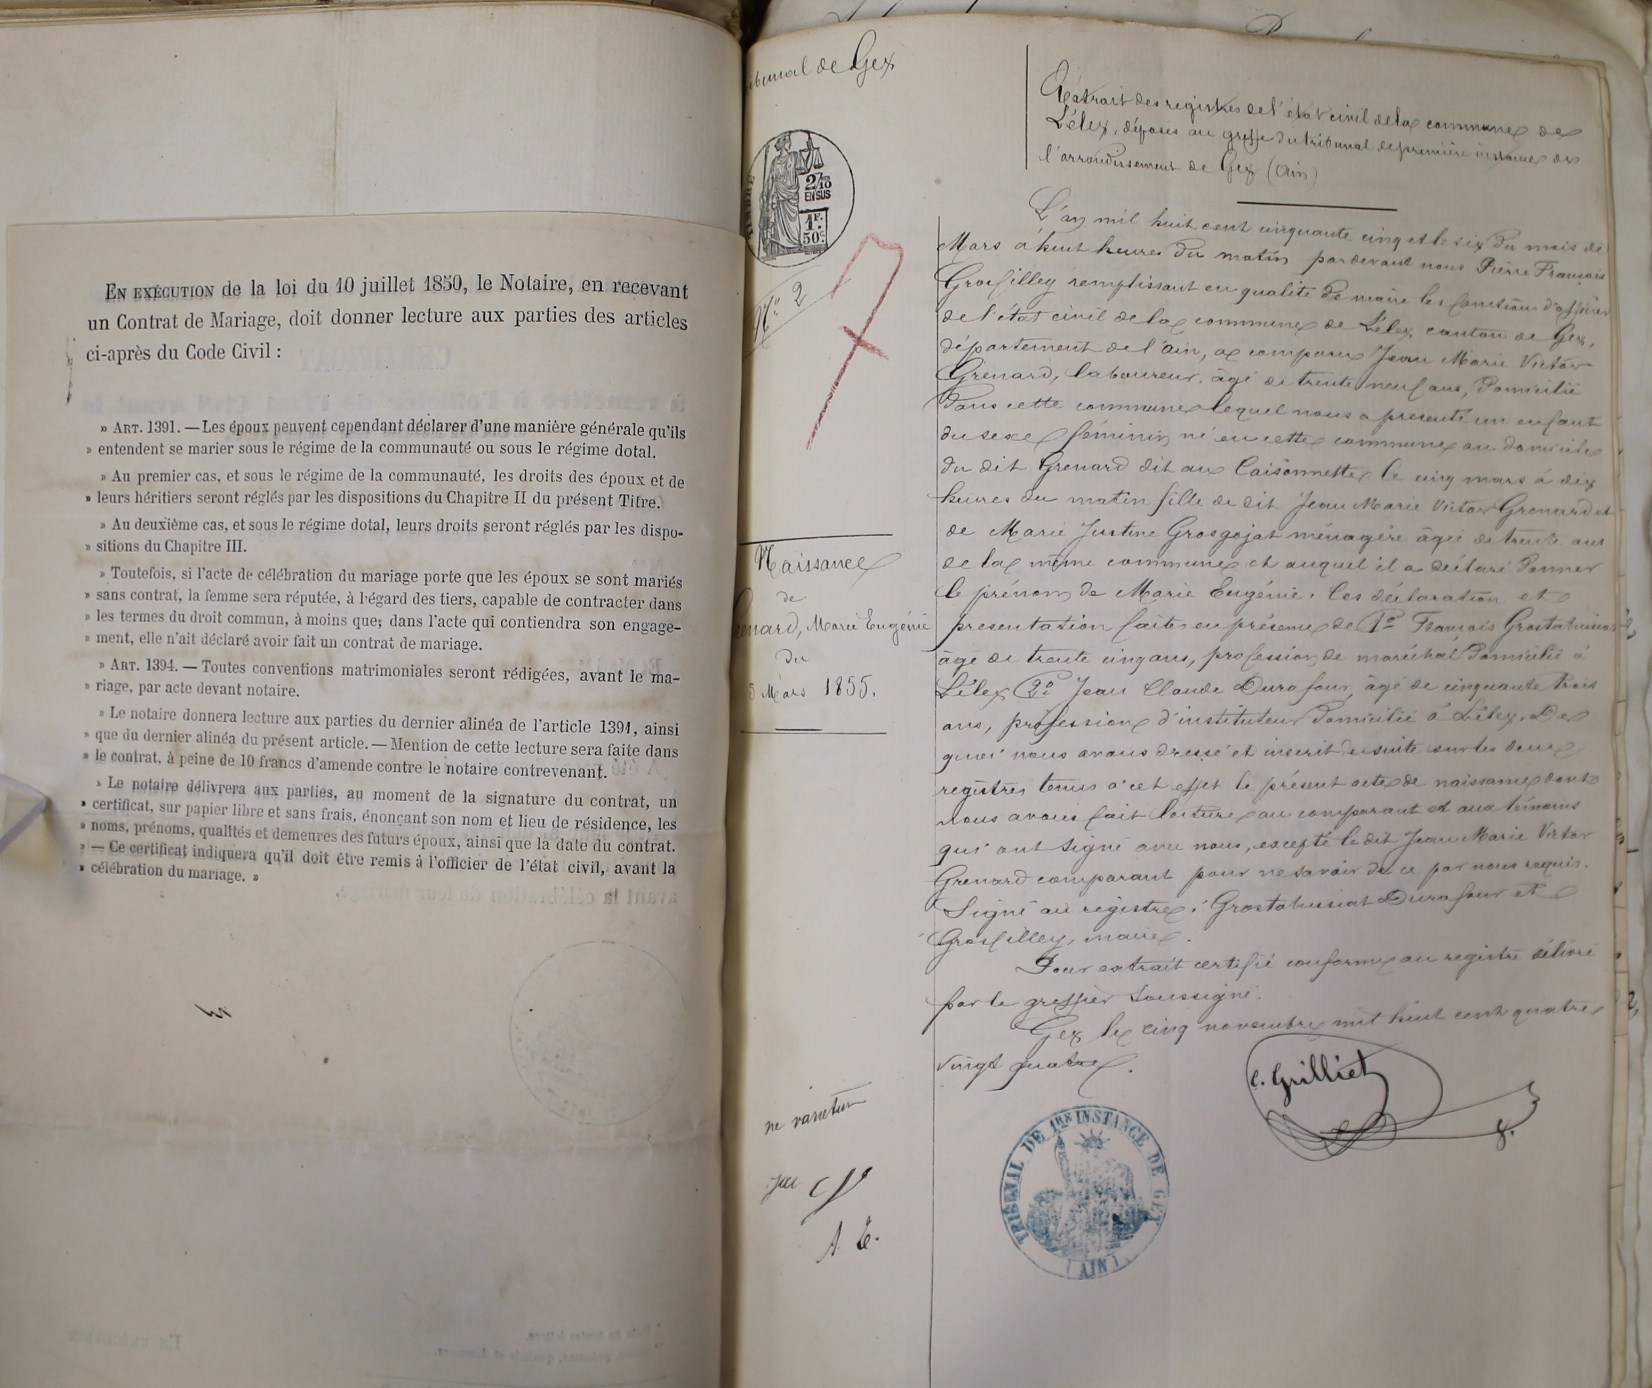 En exécution de la loi du 10 juillet 1850, le Notaire, en recevant
un Contrat de Mariage, doit donner lecture aux parties des articles
ci-après du Code Civil :
» Art. 1391. — Les époux peuvent cependant déclarer d'une manière générale qu'ils
» entendent se marier sous le régime de la communauté ou sous le régime dotal.
» Au premier cas, et sous le régime de la communauté, les droits des époux et de
» leurs héritiers seront réglés par les dispositions du Chapitre II du présent Titre.
» Au deuxième cas, et sous le régime dotal, leurs droits seront réglés par les dispo-
» sitions du Chapitre III.
» Toutefois, si l'acte de célébration du mariage porte que les époux se sont mariés
» sans contrat, la femme sera réputée, à l'égard des tiers, capable de contracter dans
» les termes du droit commun, à moins que, dans l'acte qui contiendra son engage-
» ment, elle n'ait déclaré avoir fait un contrat de mariage.
» Art. 1394. — Toutes conventions matrimoniales seront rédigées, avant le ma-
» riage, par acte devant notaire.
» Le notaire donnera lecture aux parties du dernier alinéa de l'article 1391, ainsi
» que du dernier alinéa du présent article. — Mention de cette lecture sera faite dans
» le contrat, à peine de 10 francs d'amende contre le notaire contrevenant.
» Le notaire délivrera aux parties, au moment de la signature du contrat, un
» certificat, sur papier libre et sans frais, énonçant son nom et lieu de résidence, les
» noms, prénoms, qualités et demeures des futurs époux, ainsi que la date du contrat.
» — Ce certificat indiquera qu'il doit être remis à l'officier de l'état civil, avant la
» célébration du mariage. »
bunal de Gex
2/10
EN SUS
1F.
50c
No 2
Naissance
de
enard, Marie Eugénie
du
5 Mars 1855.
ne varietur
A. L.
Extrait des registres de l'état civil de la commune de
Lélex, déposés au greffe du tribunal de première instance de
l'arrondissement de Gex (Ain)
L'an mil huit cent cinquante cinq et le six du mois de
Mars à huit heures du matin pardevant nous Pierre François
Grosfilley remplissant en qualité de maire les fonctions d'officier
de l'état civil de la commune de Lélex canton de Gex,
département de l'ain, a comparu Jean Marie Victor
Grenard, laboureur, âgé de trente neuf ans, domicilié
dans cette commune lequel nous a présenté un enfant
du sexe féminin né en cette commune au domicile
du dit Grenard dit aux le cinq mars à dix
heures du matin fille de dit Jean Marie Victor Grenard et
de Marie Justine Grosgojat ménagère âgée de trente ans
de la même commune et auquel il a déclaré donner
le prénom de Marie Eugénie. les déclaration et
présentation faites en présence de 1o François Grostabussiat
âgé de trente cinq ans, profession de maréchal domicilié à
Lélex 2o Jean Claude Durafour, âgé de cinquante trois
ans, profession d'instituteur domicilié à Lélex. De
quoi nous avons dressé et inscrit de suite sur les deux
registres tenus à cet effet le présent acte de naissance dont
nous avons fait lecture au comparant et aux témoins
qui ont signé avec nous, excepté le dit Jean Marie Victor
Grenard comparant pour ne savoir de ce par nous requis.
Signé au registre : Grostabussiat Durafour et
Grosfilley, maire.
Pour extrait certifié conforme au registre délivré
par le greffier soussigné.
Gex le cinq novembre mil huit cent quatre
vingt quatre.
C. Grilliet
TRIBUNAL DE 1RE INSTANCE DE GEX
(AIN)